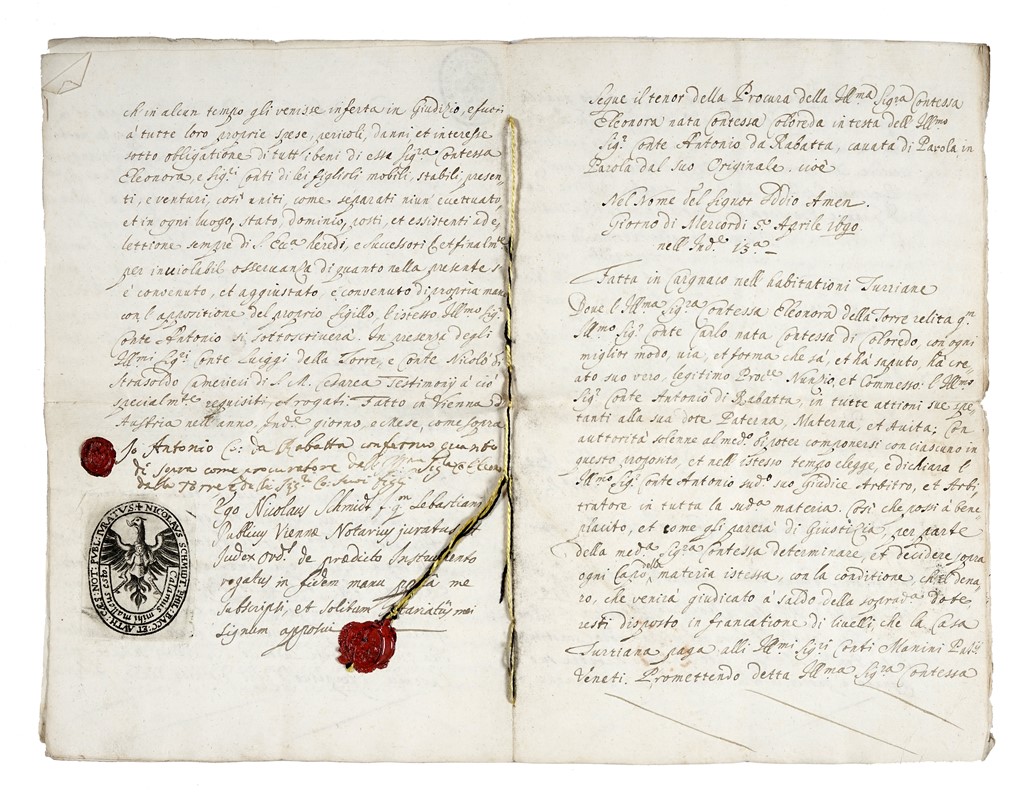 ch'in alcun tempo gli venisse inferta in Giudizio, e fuori
à tutte loro proprie spese, pericoli, danni, et interesse
sotto obligatione di tutti i beni di essa Sig.ra Contessa
Eleonora, e Sig.ri Conti di lei figlioli mobili, stabili, presen-
ti, e venturi, così uniti, come separati niun' eccettuato,
et in ogni luogo, stato, dominio, posti, et essistenti ad e-
lettione sempre di S. Ecc.a heredi, e successori Et final m.te
per inviolabil osservanza di quanto nella presente s
è convenuto, et aggiustato, è convenuto di propria man
con l'appositione del proprio Sigillo, l'istesso Ill.mo Sig.r
Conte Antonio si sottoscriverà. In presenza degli
Ill.mi Sig.ri Conte Luiggi della Torre, e Conte Nicolò di
Strasoldo Camerieri di S. M. Cesarea Testimonij à ciò
specialm.te requisiti, et rogati. Fatto in Vienna d'
Austria nell'anno, Ind.e giorno, e Mese, come sopra
Io Antonio Co: da Rabatta confermo quanto
di sopra come procuratore dalla Sig.ra Co: Eleon
della Torre e delli Sig.ri Co: suoi figli
Ego Nicolaus Schmidt f. q.m Sebastiani
Publicus Viennæ Notarius juratus
Judex Ord.s de prædicto Instrumento
rogatus in fidem manu propria me
Subscripsi, et solitum Notariatus mei
Signum apposui
✝ NICOLAVS SCHMIDT PHIL: BACC: ET AVTH: CÆS: NOT: PVBL: IVRATVS
Calamus mihi malleus esto
Segue il tenor della Procura della Ill.ma Sig.ra Contessa
Eleonora nata Contessa Coloreda in testa dell' Ill.mo
Sig.r Conte Antonio da Rabatta, cavata di Parola in
Parola dal suo Originale. cioè
Nel Nome del Signor Iddio Amen.
Giorno di Mercordì 5.o Aprile 1690
nell' Ind.e 13.a
Fatta in Cargnaco nell' habitationi Turriane
Dove l'Ill.ma Sig.ra Contessa Eleonora della Torre relita q.m
Ill.mo Sig.r Conte Carlo nata Contessa di Coloredo, con ogni
miglior modo, via, et forma che sà, et hà saputo, hà cre-
ato suo vero, legitimo Proc.re Nunzio, et Commesso: l'Ill.mo
Sig.r Conte Antonio di Rabatta, in tutte attioni sue spe-
tanti alla sua dote Paterna, Materna, et Avita; Con
auttorità solenne al med.o di poter componersi con ciascuno in
questo proposito, et nell' istesso tempo elegge, e dichiara l'
Ill.mo Sig.r Conte Antonio sud.o suo Giudice Arbitro, et Arbi-
tratore in tutta la sud.a materia. Così che possi à bene-
placito, et come gli parerà di Giustitia, per parte
della med.a Sig.ra Contessa determinare, et decidere sopra
ogni Capo della materia istessa, con la conditione, ch'il dena-
ro, che venirà giudicato à saldo della sopra d.a Dote,
resti disposto in francatione di livelli, che la Casa
Turriana paga alli Ill.mi Sig.ri Conti Manini Pat.ij
Veneti. Promettendo detta Ill.ma Sig.ra Contessa